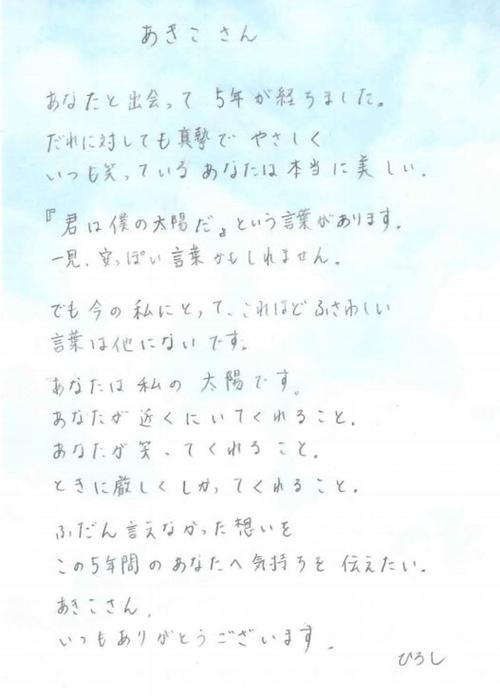 あきこさん
あなたと出会って 5年が経ちました。
だれに対しても真摯で やさしく
いつも笑っている あなたは本当に美しい.
『君は僕の太陽だ』という言葉があります.
一見、安っぽい言葉かもしれません.
でも今の私にとって、これほどふさわしい
言葉は他にないです。
あなたは私の太陽です。
あなたが近くにいてくれること.
あなたが笑ってくれること.
ときに厳しくしかってくれること.
ふだん言えなかった想いを
この5年間のあなたへ気持ちを伝えたい.
あきこさん.
いつもありがとうございます.
ひろし